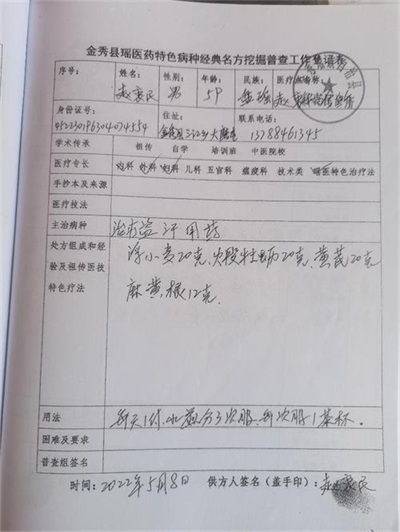 金秀县瑶医药特色病种经典名方挖掘普查工作登记表
序号: 姓名: 性别: 年龄: 民族: 医疗点名称:
男 59 盘瑶
身份证号: 住址: 联系电话:
金秀县三江乡 13788461345
学术传承 祖传 自学 培训班 中医院校
医疗专长 内科 外科 妇科 儿科 五官科 瘟疫科 技术类 瑶医特色治疗法
手抄本及来源
医疗技法
主治病种 治盗汗用药
处方组成和经
验及祖传医技
特色疗法
浮小麦20克、火煅牡蛎20克、黄芪20克
麻黄根12克
用法 每天1剂、水煎分3次服、每次服1茶杯。
困难及要求
普查组签名
时间:2022年5月8日 供方人签名(盖手印):